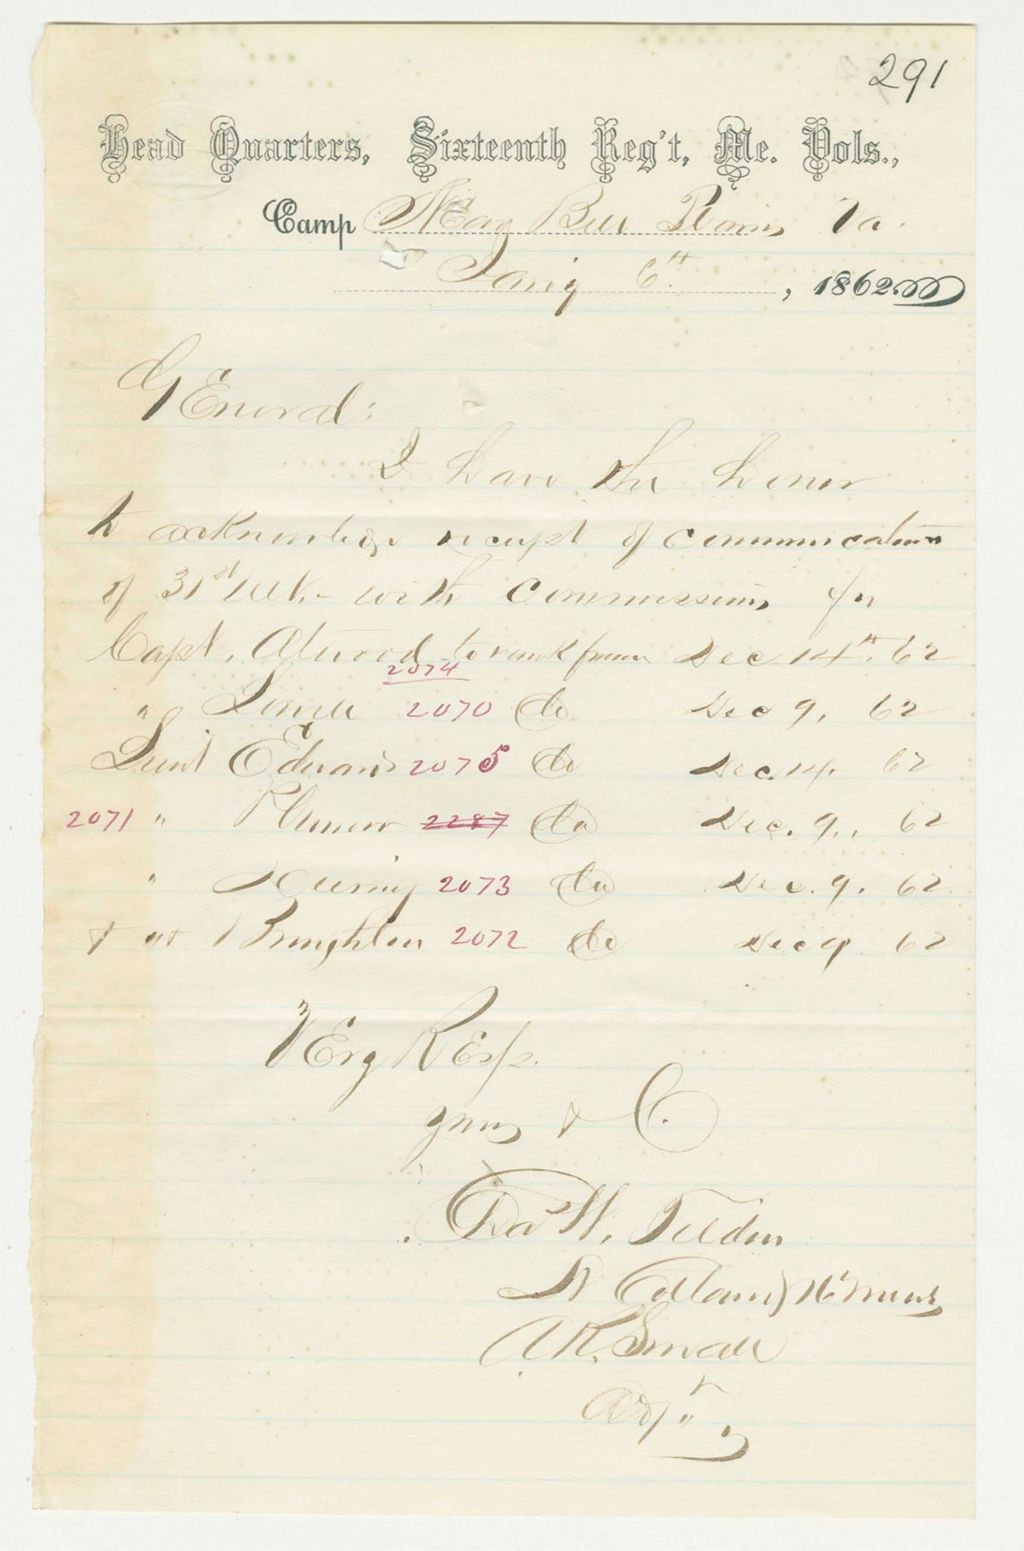 291
Head Quarters, Sixteenth Reg't, Me. Vols.,
Camp Near Bell Plains Va.
Jan'y 6th, 1862
General:
I have the honor
to acknowledge receipt of communication
of 31st Ult. - with commissions for
Capt. Atwood to rank from Dec 14th, 62
2074
" Lowell 2070 do Dec 9, 62
Lieut Edwards 2075 do Dec. 14, 62
2071 " Plumer 2287 do Dec. 9., 62
" Deering 2073 do Dec. 9. 62
& " Broughton 2072 do Dec 9 62
Very Resp.
yours & C.
Chas W. Tilden
Lt Col Com'd 16' Maine
A.R. Small
Adj't